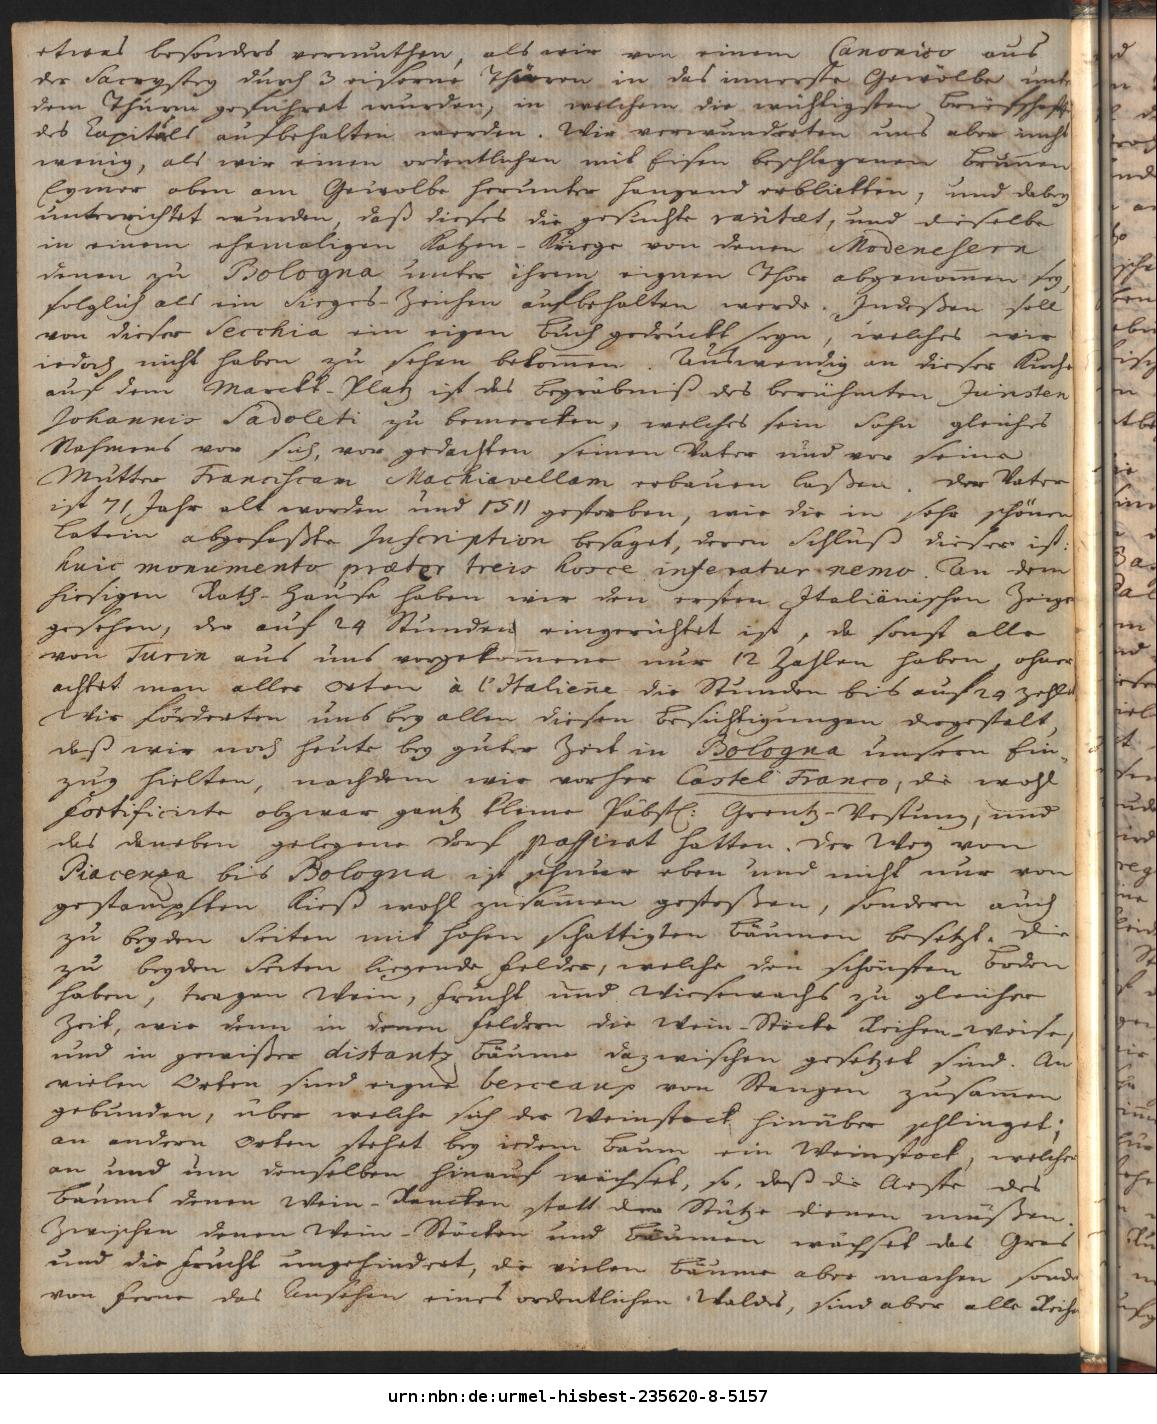 etwas besonders vermuthen, als wir von einem Canonico aus
der Sacrystey durch 3 eiserne Thüren in das innerste Gewölbe unter
dem Thurm geführet wurden, in welchem die wichtigsten Briefschafften
des Capituls aufbehalten werden. Wir verwunderten uns aber nicht
wenig, als wir einen ordentlichen mit Eisen beschlagenen Brunnen
Eymer oben am Gewolbe herunter hangend erblickten, und dabey
unterrichtet wurden, daß dieses die gesuchte raritæt, und dieselbe
in einem ehemaligen Katzen-Kriege von denen Modenesern
denen zu Bologna unter ihrem eignen Thor abgenom̄en sey,
folglich als ein Sieges-Zeichen aufbehalten werde. Indeßen soll
von dieser Secchia ein eigen Buch gedruckt seyn, welches wir
iedoch nicht haben zu sehen bekom̄en. Auswendig an dieser Kirche
auf dem Marckt-Platz ist das Begräbniß des berühmten Juristen
Johannis Sadoleti zu bemercken, welches sein Sohn gleiches
Nahmens vor sich, vor gedachten seinen Vater und vor seine
Mutter Franciscam Machiavellam erbauen laßen. Der Vater
ist 71 Jahr alt worden und 1511 gestorben, wie die in sehr schönen
Latein abgefaßte Inscription besaget, deren Schluß dieser ist:
huic monumento præter treis hosce inferatur nemo. An dem
hiesigen Rath-Hause haben wir den ersten Italiänischen Zeiger
gesehen, der auf 24 Stunden eingerichtet ist, da sonst alle
von Turin aus uns vorgekom̄ene nur 12 Zahlen haben, ohner
achtet man aller Orten à l'Italien̄e die Stunden bis auf 24 zehlet
Wir förderten uns bey allen diesen Besichtigungen dergestalt,
daß wir noch heute bey guter Zeit in Bologna unsern Ein-
zug hielten, nachdem wir vorher Castel Franco, die wohl
fortificirte obzwar gantz kleine Päbstl: Grentz-Vestung, und
das daneben gelegene Dorf passiret hatten. Der Weg von
Piacenza bis Bologna ist schnur eben und nicht nur von
gestampften Kieß wohl zusam̄en gestoßen, sondern auch
zu beyden Seiten mit hohen schattigten Bäumen besetzt. Die
zu beyden Seiten liegende Felder, welche den schönsten Boden
haben, tragen Wein, Frucht und Wiesewachs zu gleicher
Zeit, wie denn in denen Feldern die Wein-Stöcke Reihen-weise,
und in gewißer distantz Bäume dazwischen gesetzet sind. An
vielen Orten sind eigne berceaux von Stangen zusam̄en
gebunden, über welche sich der Weinstock hinüber schlinget;
an andern Orten stehet bey iedem Baum ein Weinstock, welcher
an und um denselben hinauf wächset, so, daß die Aeste des
Baums denen Wein-Rancken statt der Stütze dienen müßen.
Zwischen denen Wein-Stöcken und Bäumen wächset das Gras
und die Frucht ungehindert, die vielen Bäume aber machen
von ferne das Ansehen eines ordentlichen Waldes, sind aber alle
urn:nbn:de:urmel-hisbest-235620-8-5157